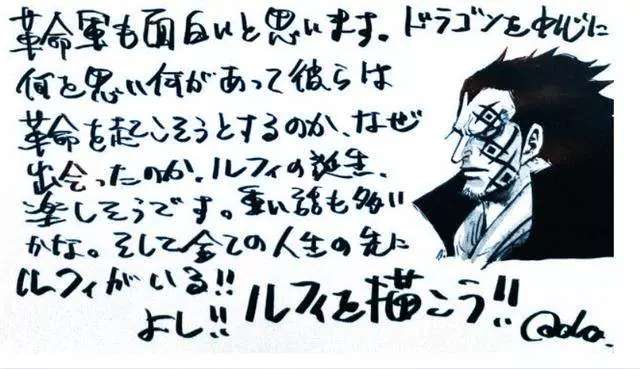 革命軍も面白いと思います。ドラゴンをめじに
何を思い何があって彼らは
革命を起こそうとするのか、なぜ
出会ったのか。ルフィの誕生、
楽しそうです。重い話も多い
かな。そして全ての人生の先に
ルフィがいる!!
よし!! ルフィを描こう!!
Oda.